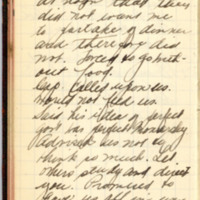 at night that they
did not want me
to partake of dinner
and therefore did
not. Forced to go with-
out food.
Cap. Called upon us.
Would not feed us
Said his idea of perfect
joy was perfect
advised us not to
think so much. Let
others study and direct
you. Promised to